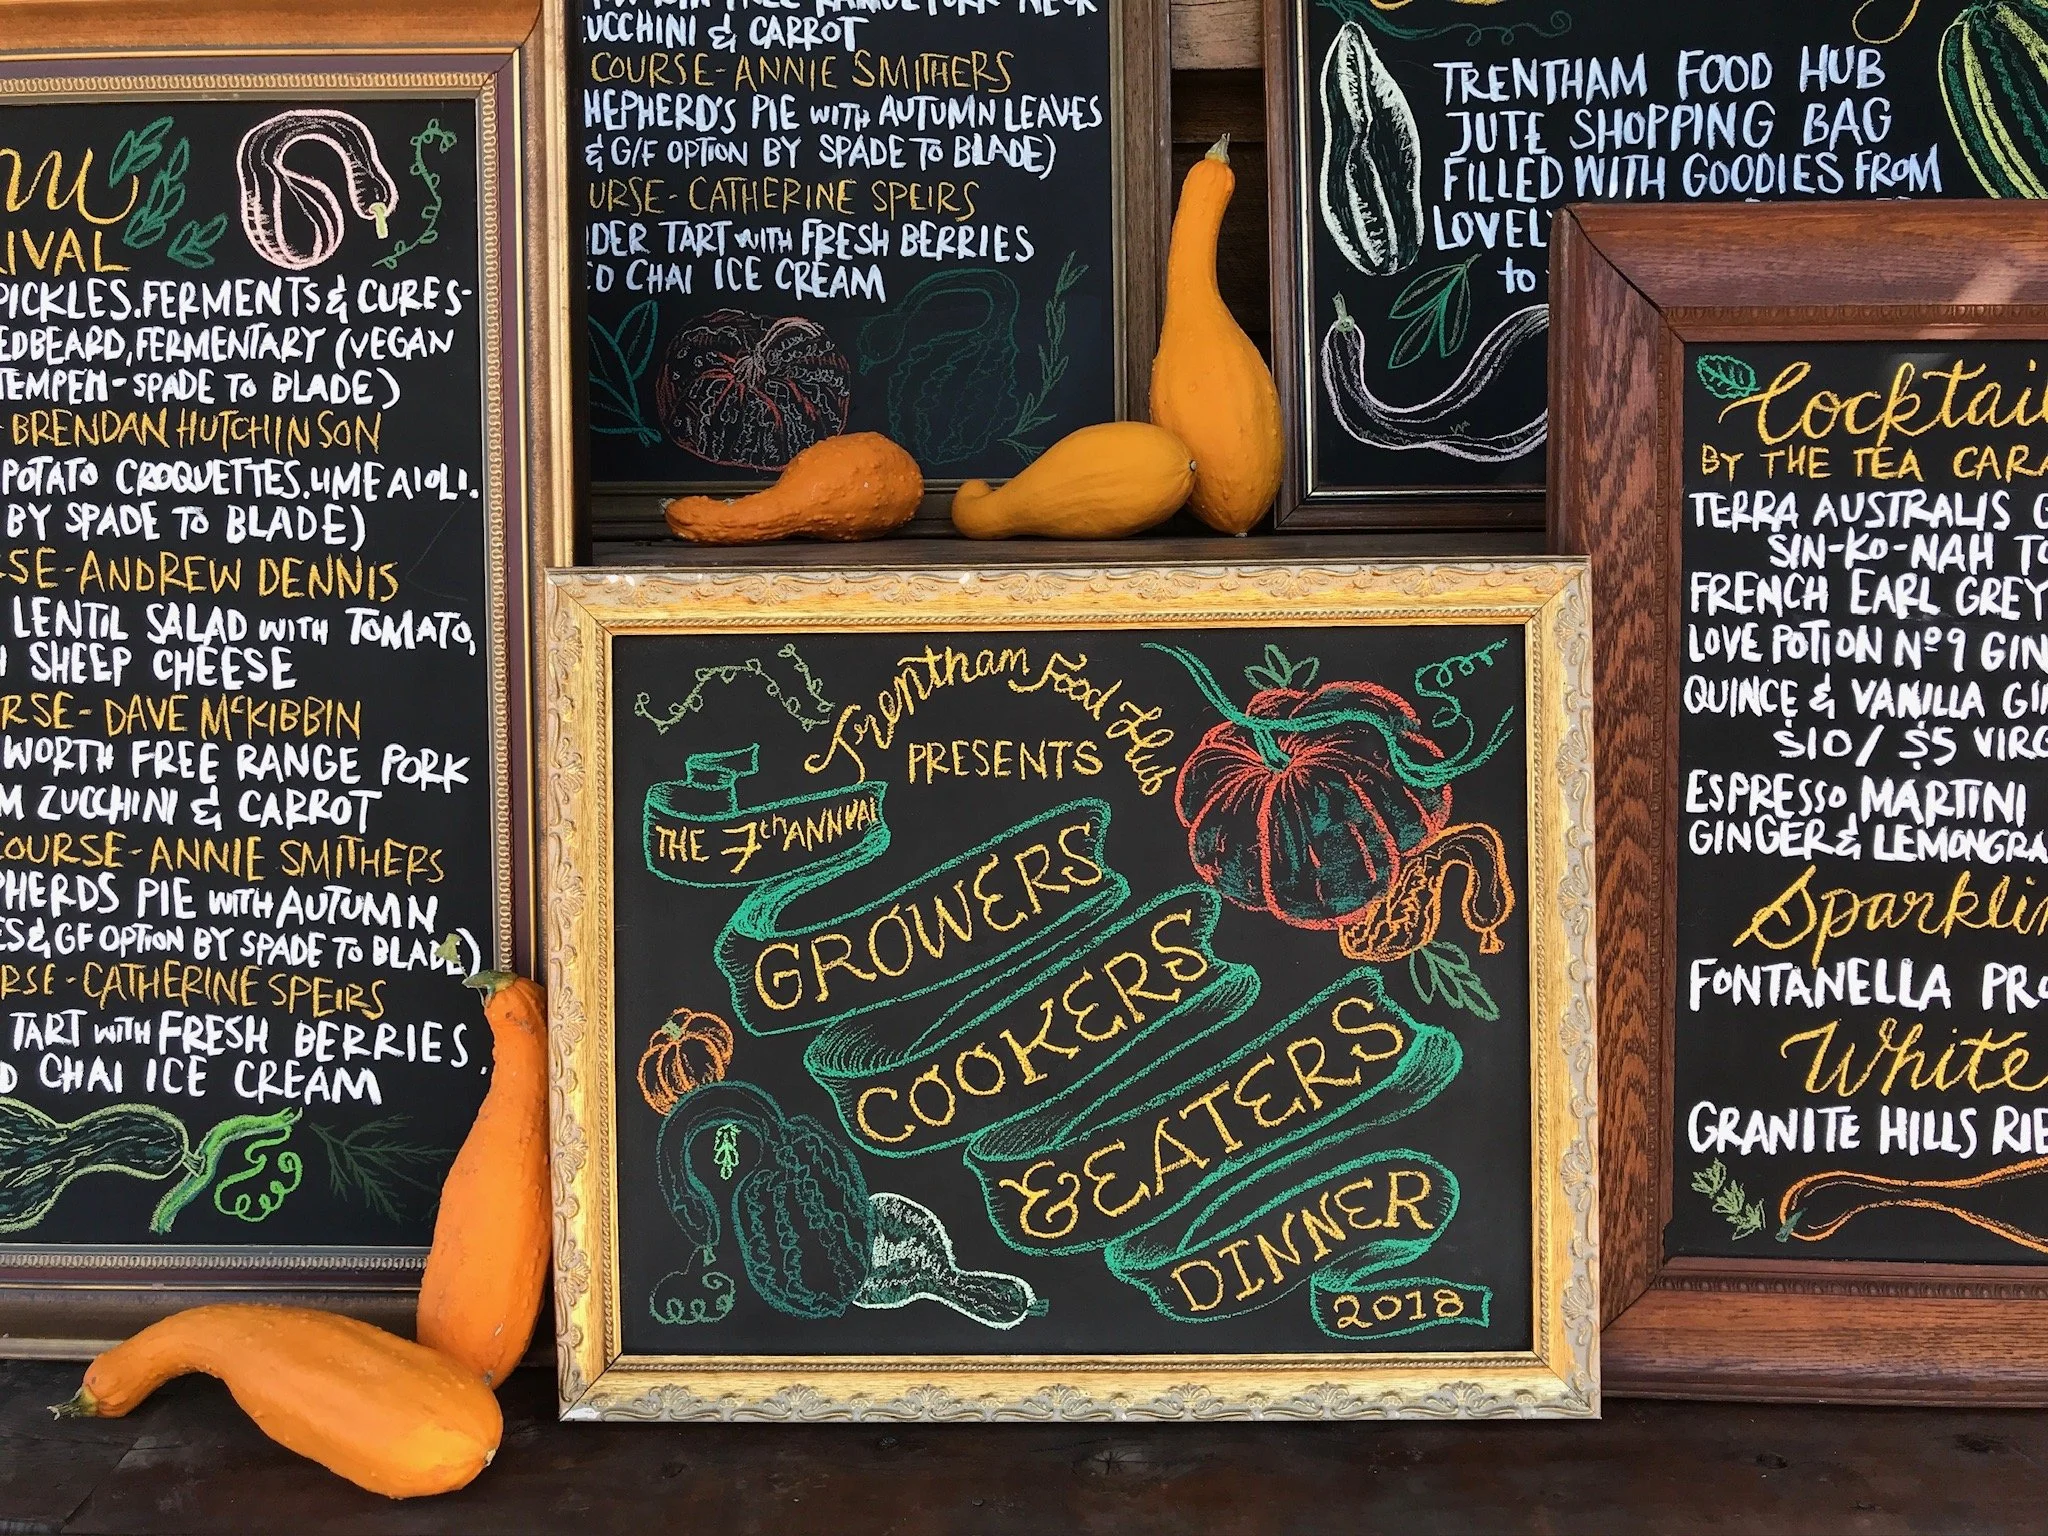 RIVAL
PICKLES. FERMENTS & CURES-
EDBEARD, FERMENTARY (VEGAN
TEMPEH - SPADE TO BLADE)
- BRENDAN HUTCHINSON
POTATO CROQUETTES. LIME AIOLI.
BY SPADE TO BLADE)
RSE - ANDREW DENNIS
LENTIL SALAD WITH TOMATO,
SHEEP CHEESE
RSE - DAVE McKIBBIN
WORTH FREE RANGE PORK
ZUCCHINI & CARROT
COURSE - ANNIE SMITHERS
PHERDS PIE WITH AUTUMN
ES & GF OPTION BY SPADE TO BLADE)
RSE - CATHERINE SPEIRS
TART WITH FRESH BERRIES.
CHAI ICE CREAM
ZUCCHINI & CARROT
COURSE - ANNIE SMITHERS
HEPHERD'S PIE WITH AUTUMN LEAVES
& G/F OPTION BY SPADE TO BLADE)
URSE - CATHERINE SPEIRS
DER TART WITH FRESH BERRIES
CHAI ICE CREAM
TRENTHAM FOOD HUB
JUTE SHOPPING BAG
FILLED WITH GOODIES FROM
LOVEL
to
Trentham Food Hub
PRESENTS
THE 7th ANNUAL
GROWERS
COOKERS
& EATERS
DINNER
2018
Cocktail
BY THE TEA CARA
TERRA AUSTRALIS G
SIN-KO-NAH TO
FRENCH EARL GREY
LOVE POTION Nº 9 GIN
QUINCE & VANILLA GI
$10/ $5 VIRG
ESPRESSO MARTINI
GINGER & LEMONGRA
Sparklin
FONTANELLA PRO
White
GRANITE HILLS RIE